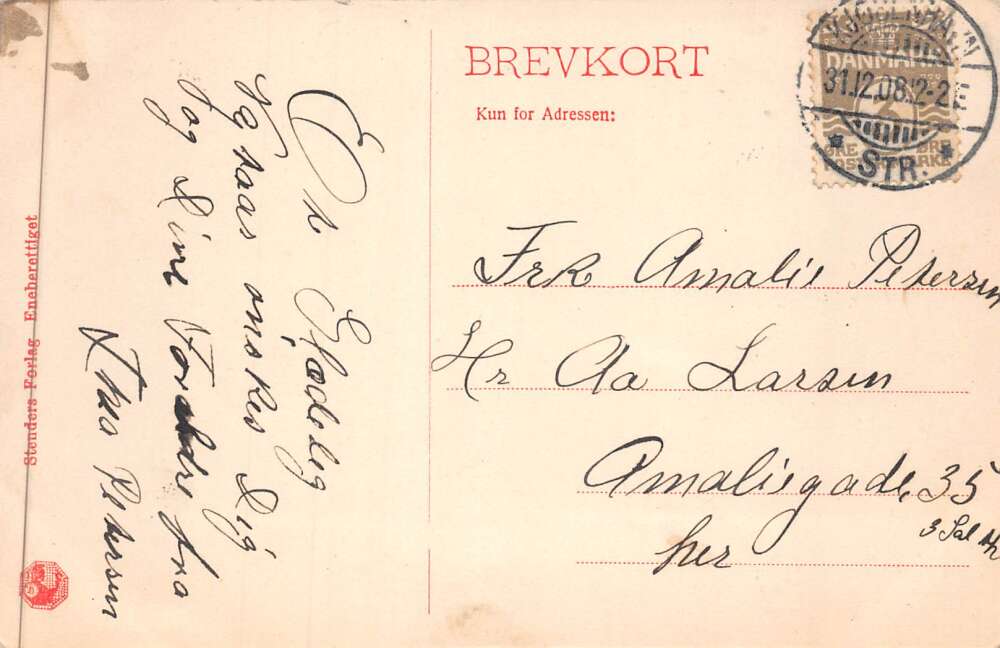 BREVKORT
Kun for Adressen:
KJØBENHAVN
31.12.08.12-2 E.
STR.
DANMARK
ØRE ØRE
Frk Amalie Petersen
Hr Aa Larsen
Amaliegade, 35
3 Sal th
her
Et Glædelig
Nytaar ønskes Dig
og Dine Forældre fra
Petersen
Stenders Forlag Eneberettiget